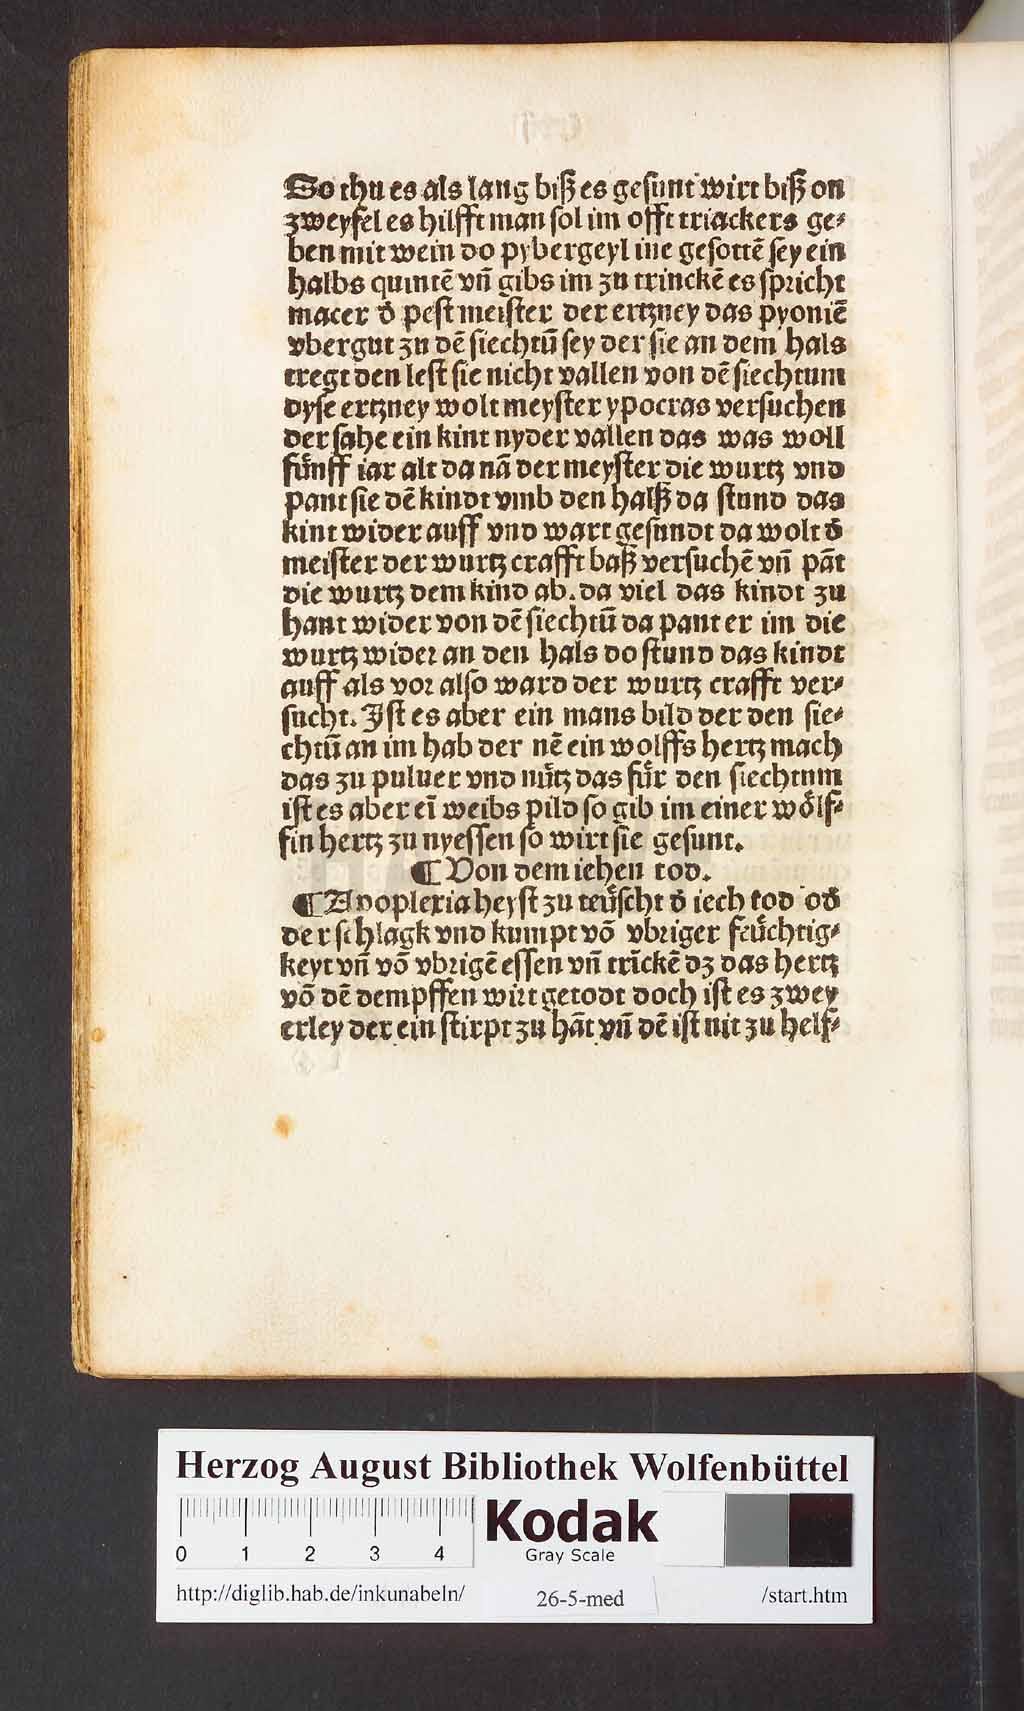 So thu es als lang biß es gesunt wirt biß on
zweyfel es hilfft man sol im offt triackers ge⸗
ben mit wein do pybergeyl ine gesottē sey ein
halbs quintē vñ gibs im zu trinckē es spricht
macer d̄ pest meister der ertzney das pyoniē
vbergut zu dē siechtū sey der sie an dem hals
tregt den lest sie nicht vallen von dē siechtum
dyse ertzney wolt meyster ypocras versuchen
der sahe ein kint nyder vallen das was woll
fünff iar alt da nā der meyster die wurtz vnd
pant sie dē kindt vmb den halß da stund das
kint wider auff vnd wart gesundt da wolt d̄
meister der wurtz crafft baß versuchē vñ pāt
die wurtz dem kind ab. da viel das kindt zu
hant wider von dē siechtū da pant er im die
wurtz wider an den hals do stund das kindt
auff als vor also ward der wurtz crafft ver⸗
sucht. Ist es aber ein mans bild der den sie⸗
chtū an im hab der nē ein wolffs hertz mach
das zu puluer vnd nütz das für den siechtum
ist es aber eī weibs pild so gib im einer wölf⸗
fin hertz zu nyessen so wirt sie gesunt.
¶ Von dem iehen tod.
¶ Apoplexia heyst zu teüscht d̄ iech tod od̄
der schlagk vnd kumpt vō vbriger feüchtig⸗
keyt vñ vō vbrigē essen vñ trīckē dz das hertz
vō dē dempffen wirt getodt doch ist es zwey
erley der ein stirpt zu hāt vñ dē ist nit zu helf⸗
Herzog August Bibliothek Wolfenbüttel
0 1 2 3 4
Kodak
Gray Scale
http://diglib.hab.de/inkunabeln/ 26-5-med /start.htm